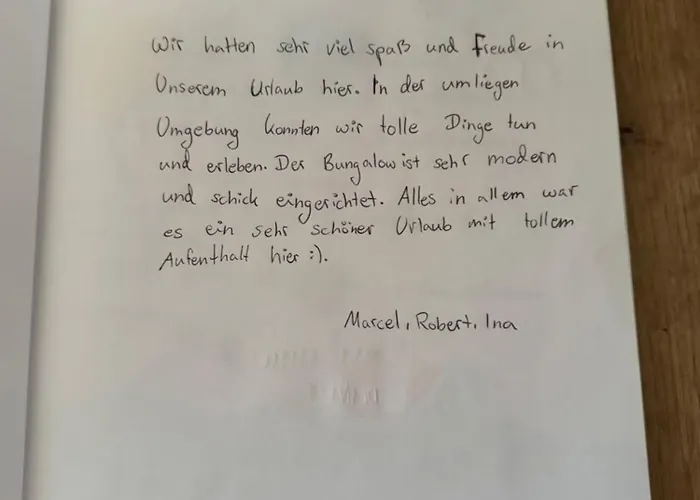 Wir hatten sehr viel spaß und Freude in
Unserem Urlaub hier. In der umliegen
Umgebung konnten wir tolle Dinge tun
und erleben. Der Bungalow ist sehr modern
und schick eingerichtet. Alles in allem war
es ein sehr schöner Urlaub mit tollem
Aufenthalt hier :).
Marcel, Robert, Ina